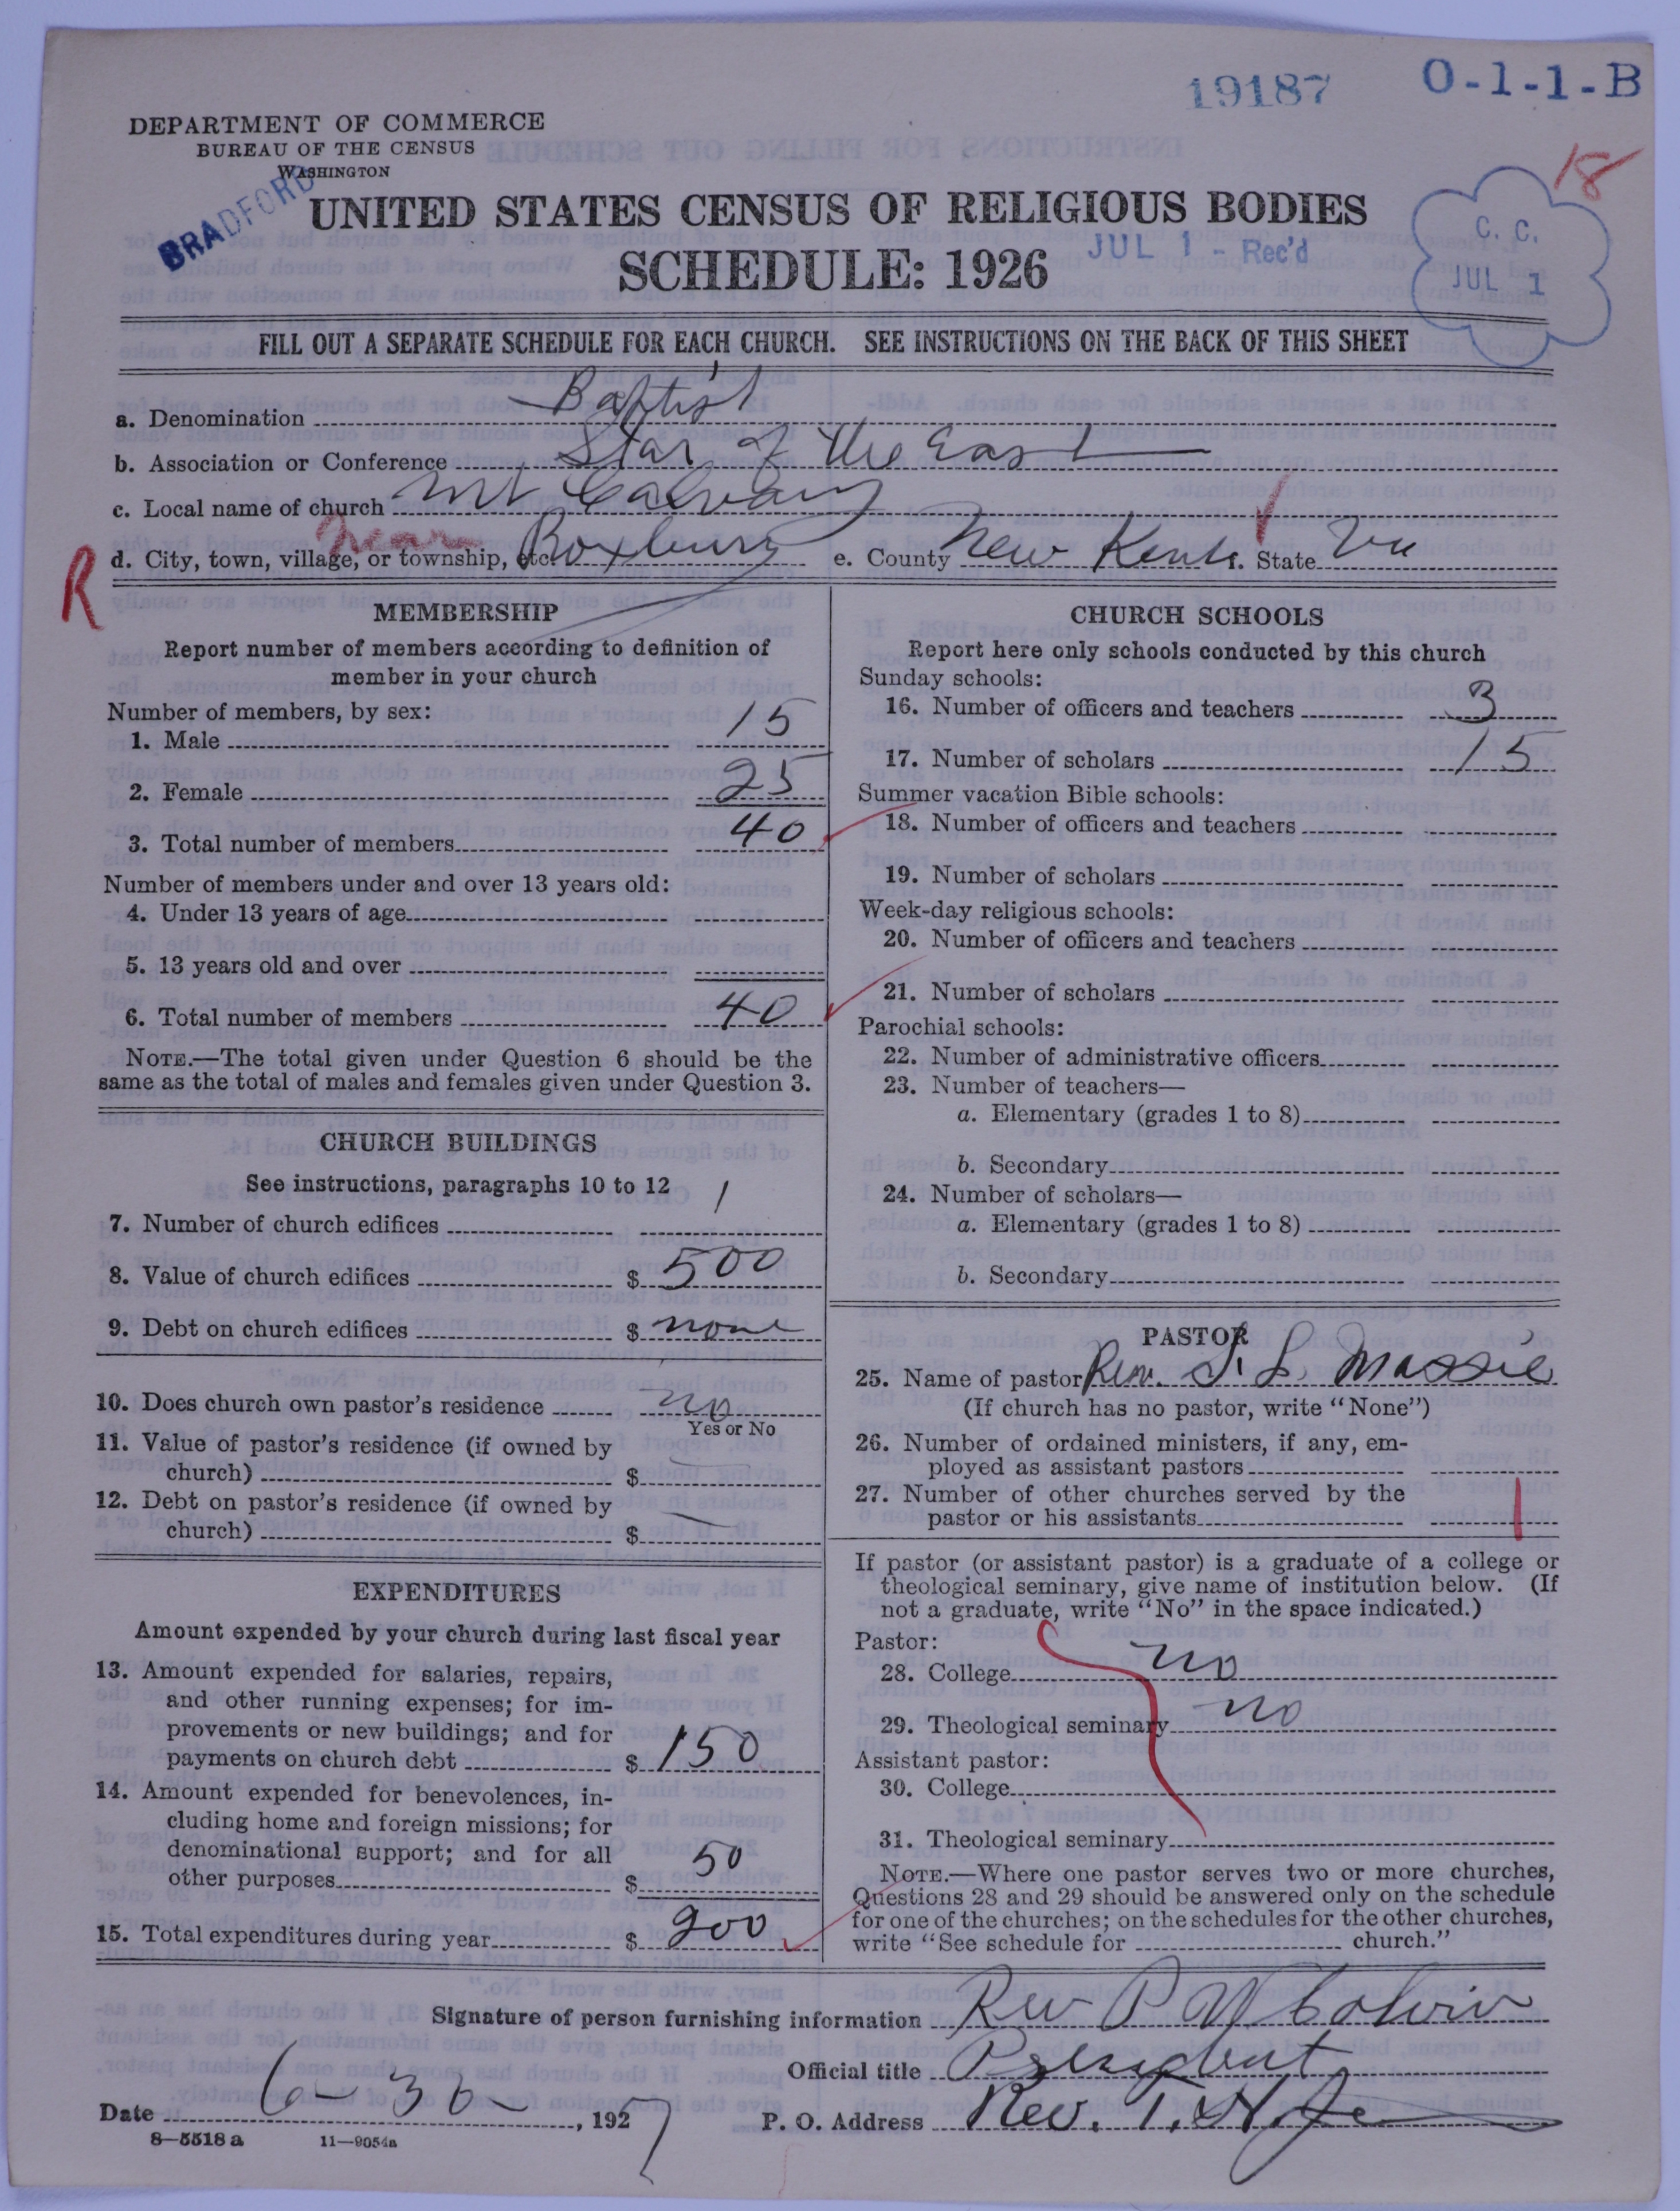 19187 O-1-1-B
18
DEPARTMENT OF COMMERCE
BUREAU OF THE CENSUS
WASHINGTON
BRADFORD
UNITED STATES CENSUS OF RELIGIOUS BODIES
SCHEDULE: 1926
JUL 1 - Rec'd
C. C.
JUL 1
FILL OUT A SEPARATE SCHEDULE FOR EACH CHURCH. SEE INSTRUCTIONS ON THE BACK OF THIS SHEET
a. Denomination Baptist
b. Association or Conference Star of the East
c. Local name of church Mt Calvary
near
R
d. City, town, village, or township, etc. Roxbury e. County New Kent. State Va
MEMBERSHIP
Report number of members according to definition of
member in your church
Number of members, by sex:
1. Male 15
2. Female 25
3. Total number of members 40
Number of members under and over 13 years old:
4. Under 13 years of age
5. 13 years old and over
6. Total number of members 40
NOTE.—The total given under Question 6 should be the
same as the total of males and females given under Question 3.
CHURCH BUILDINGS
See instructions, paragraphs 10 to 12
7. Number of church edifices 1
8. Value of church edifices $ 500
9. Debt on church edifices $ none
10. Does church own pastor's residence no
Yes or No
11. Value of pastor's residence (if owned by
church) $ —
12. Debt on pastor's residence (if owned by
church) $ —
EXPENDITURES
Amount expended by your church during last fiscal year
13. Amount expended for salaries, repairs,
and other running expenses; for im-
provements or new buildings; and for
payments on church debt $ 150
14. Amount expended for benevolences, in-
cluding home and foreign missions; for
denominational support; and for all
other purposes $ 50
15. Total expenditures during year $ 200
CHURCH SCHOOLS
Report here only schools conducted by this church
Sunday schools:
16. Number of officers and teachers 3
17. Number of scholars 15
Summer vacation Bible schools:
18. Number of officers and teachers
19. Number of scholars
Week-day religious schools:
20. Number of officers and teachers
21. Number of scholars
Parochial schools:
22. Number of administrative officers
23. Number of teachers—
a. Elementary (grades 1 to 8)
b. Secondary
24. Number of scholars—
a. Elementary (grades 1 to 8)
b. Secondary
PASTOR
25. Name of pastor Rev. S. L. Massie
(If church has no pastor, write "None")
26. Number of ordained ministers, if any, em-
ployed as assistant pastors
27. Number of other churches served by the
pastor or his assistants 1
If pastor (or assistant pastor) is a graduate of a college or
theological seminary, give name of institution below. (If
not a graduate, write "No" in the space indicated.)
Pastor:
28. College no
29. Theological seminary no
Assistant pastor:
30. College
31. Theological seminary
NOTE.—Where one pastor serves two or more churches,
Questions 28 and 29 should be answered only on the schedule
for one of the churches; on the schedules for the other churches,
write "See schedule for church."
Signature of person furnishing information Rev P W
Official title President
Date 6-30, 1927 P. O. Address Rev. T. H.
8—5518 a 11—9054a